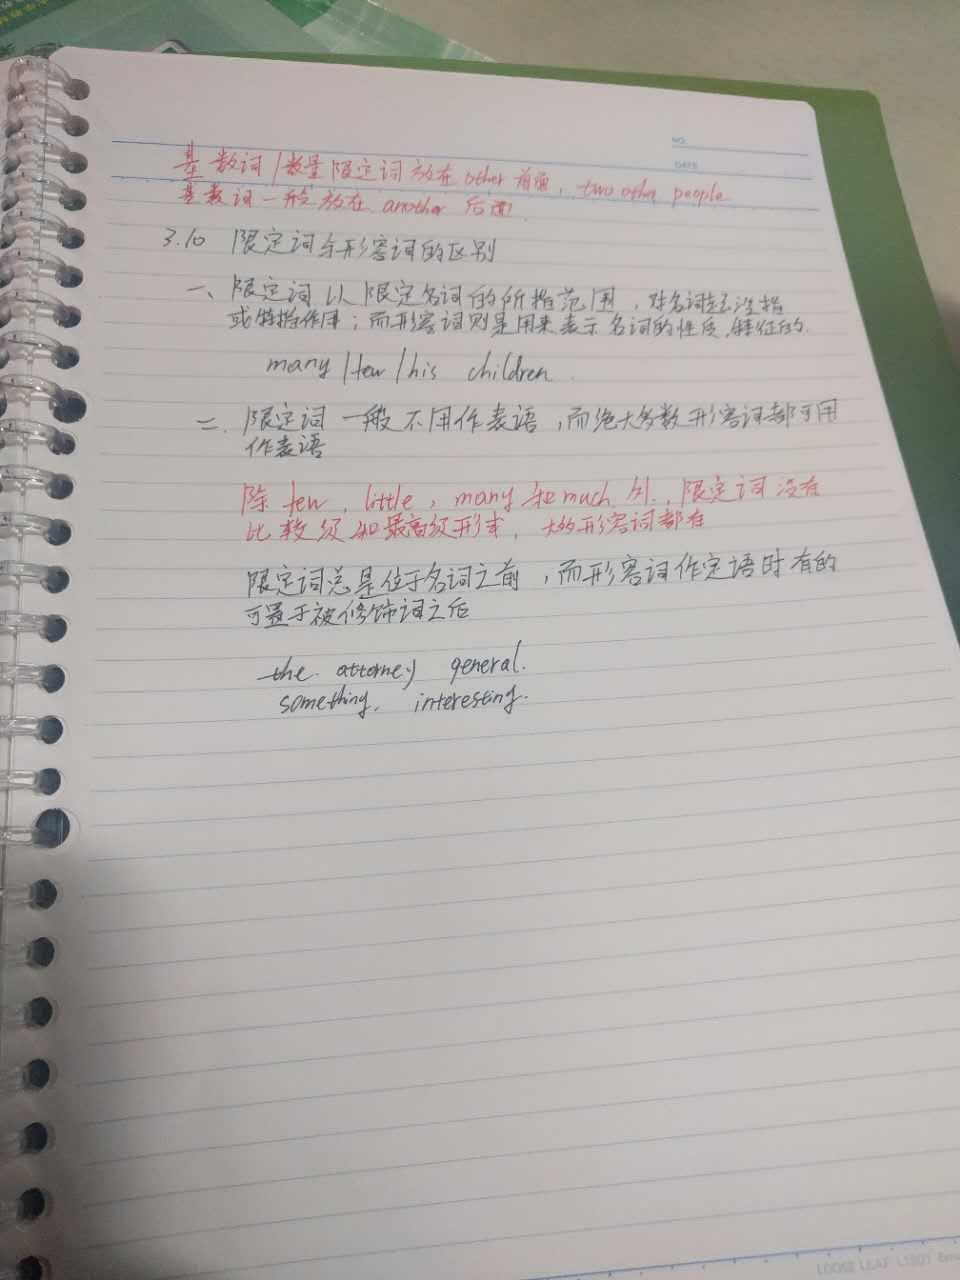 NO.
DATE
基数词/数量限定词放在other前面，two other people
基数词一般放在another后面.
3.10 限定词与形容词的区别
一、限定词以限定名词的所指范围，对名词起泛指
或特指作用；而形容词则是用来表示名词的性质,特征的.
many/few/his children.
二. 限定词一般不用作表语，而绝大多数形容词都可用
作表语
除few, little, many和much外, 限定词没有
比较级和最高级形式, 大的形容词都有
限定词总是位于名词之前，而形容词作定语时有的
可置于被修饰词之后
the attorney general.
something, interesting.
LOOSE LEAF L1901